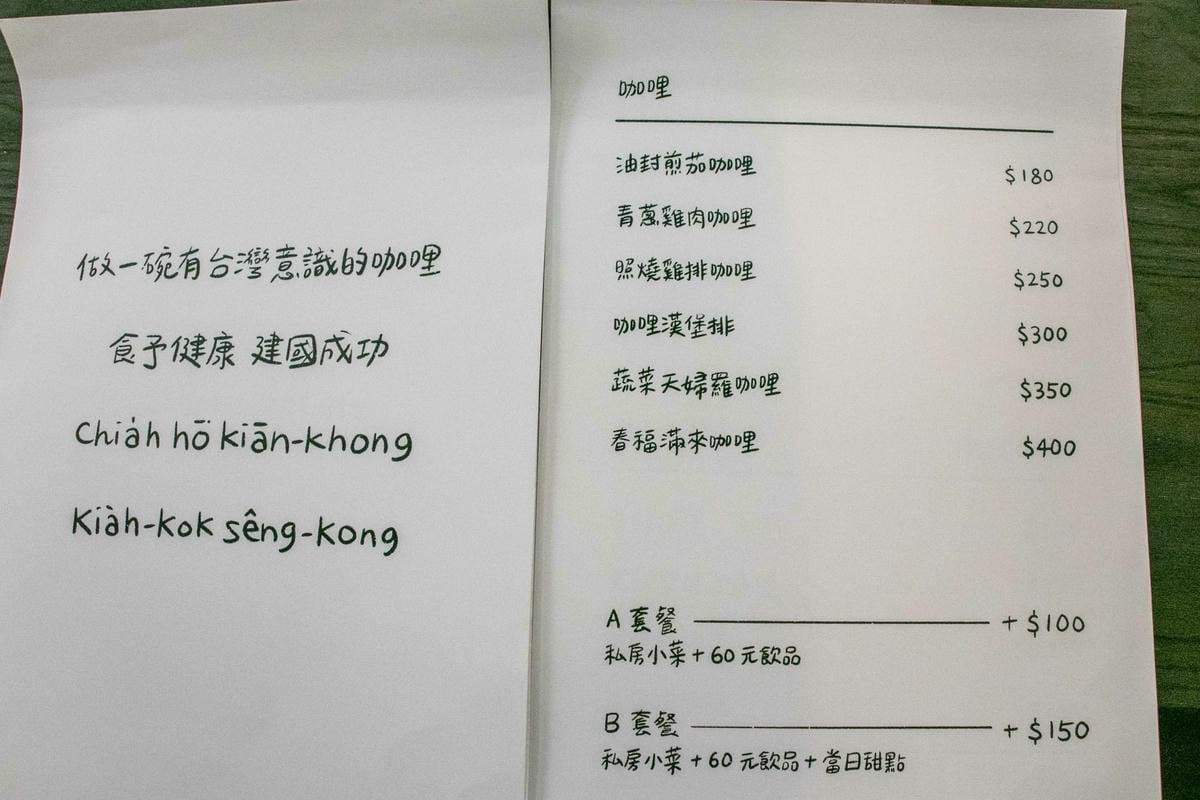 做一碗有台灣意識的咖哩
食予健康 建國成功
Chia̍h hō͘ kiān-khong
Kiàn-kok sêng-kong
咖哩
油封煎茄咖哩 $180
青蔥雞肉咖哩 $220
照燒雞排咖哩 $250
咖哩漢堡排 $300
蔬菜天婦羅咖哩 $350
春福滿來咖哩 $400
A 套餐 + $100
私房小菜 + 60 元飲品
B 套餐 + $150
私房小菜 + 60 元飲品 + 當日甜點